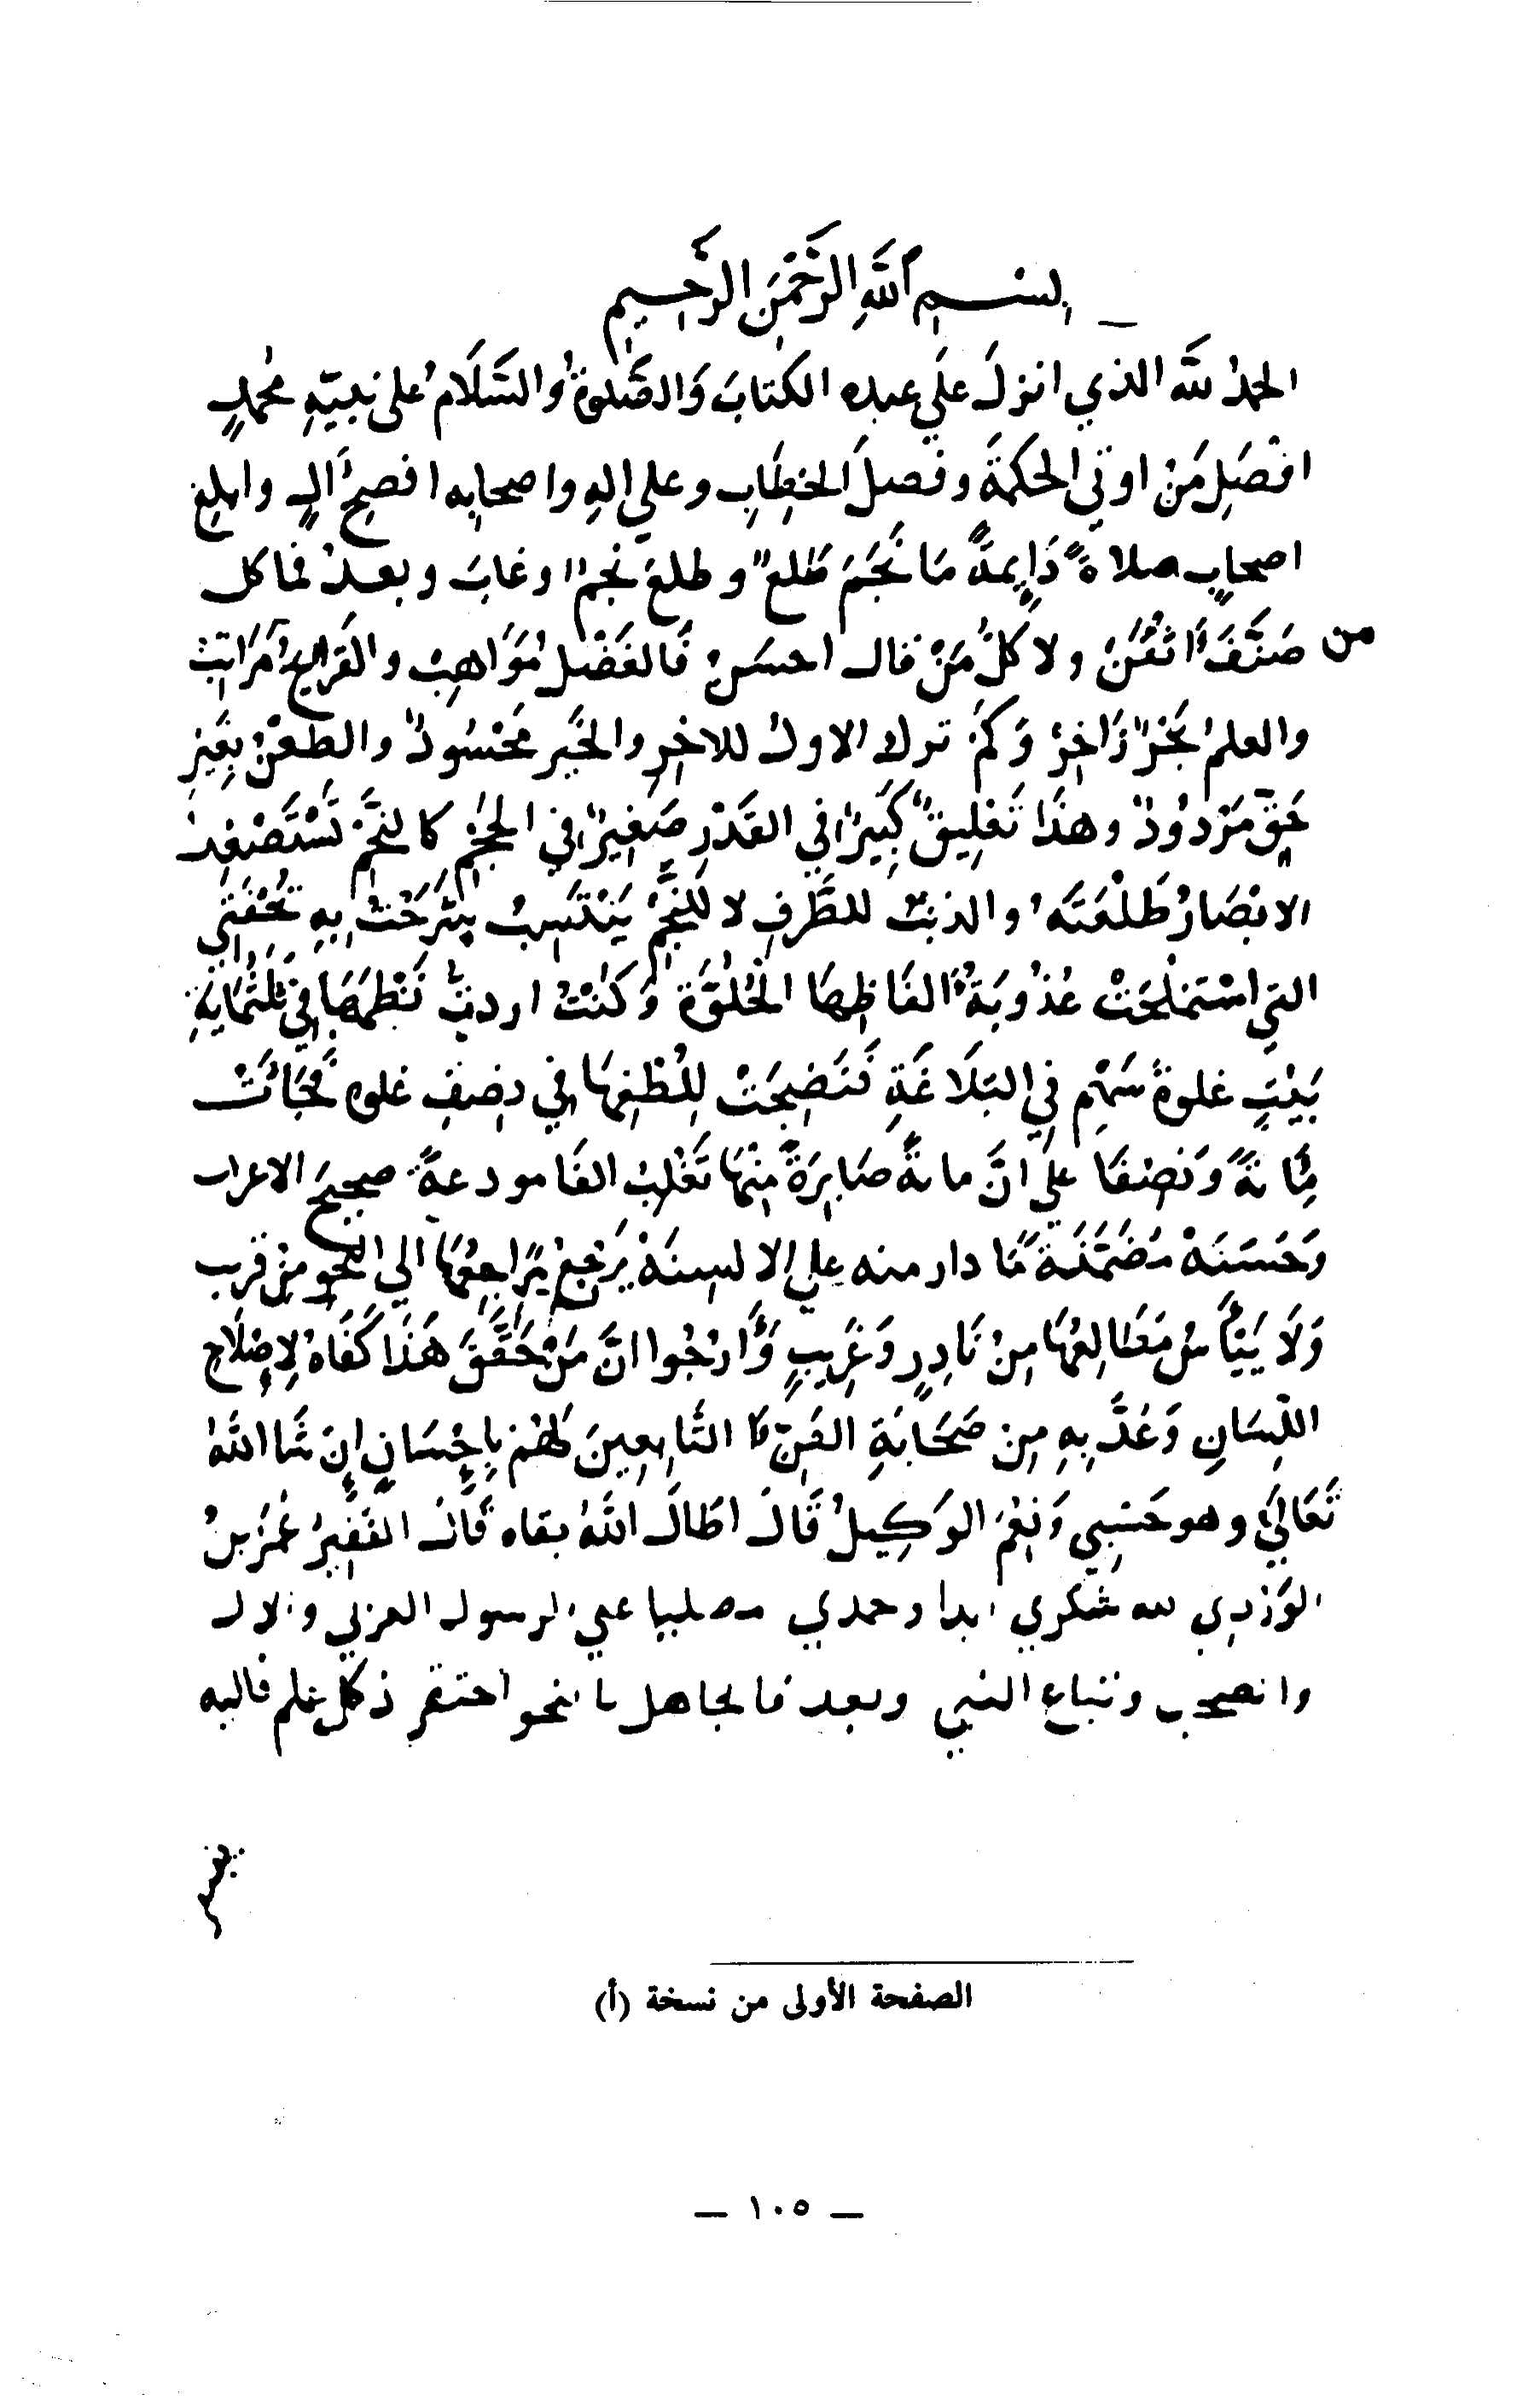 بسم الله الرحمن الرحيم
الحمد لله الذي انزل علي عبده الكتاب والصلوة والسلام على نبيه محمد
افضل من اوتي الحكمة وفصل الخطاب وعلي اله واصحابه افصح ال وابلغ
اصحاب صلاة دايمة ما نجم طلع وطلع نجم وغاب وبعد فما كل
من صنف اتقن ولا كل من قال احسن فالفضل مواهب والقرايح مراتب
والعلم بحر زاخر وكم ترك الاول للاخر والخير محسود والطعن بغير
حق مردود وهذا تعليق كبير في القدر صغير في الحجم كالنجم تستصغر
الابصار طلعته والذنب للطرف لا للنجم ينتسب شرحت به تحفتي
التي استملحت عذوبة الفاظها الحلوة وكنت اردت نظمها في ثلثماية
بيت غلوة سهم في البلاغة فنضجت للطفها في نصف غلوه فجاءت
مائة ونصفا علي ان مائة صابرة منها تغلب الفا مودعة صحيح الاعراب
وحسنه مضمنة ما دار منه علي الالسنة يرجع مراجعها الي النحو من قرب
ولا ييأس مطالعها من نادر وغريب وارجوا ان من حقق هذا كفاه لاصلاح
اللسان وعد به من صحابة الفن لا التابعين لهم باحسان ان شا الله
تعالي وهو حسبي ونعم الوكيل قال اطال الله بقاه قال الفقير عمر بن
الوردي لله شكري ابدا وحمدي مصليا علي الرسول العربي والال
والصحب وتباع النبي وبعد فالجاهل بالنحو احتقر ذ كل علم فاليه
يفتقر
الصفحة الأولى من نسخة (أ)
— ١٠٥ —